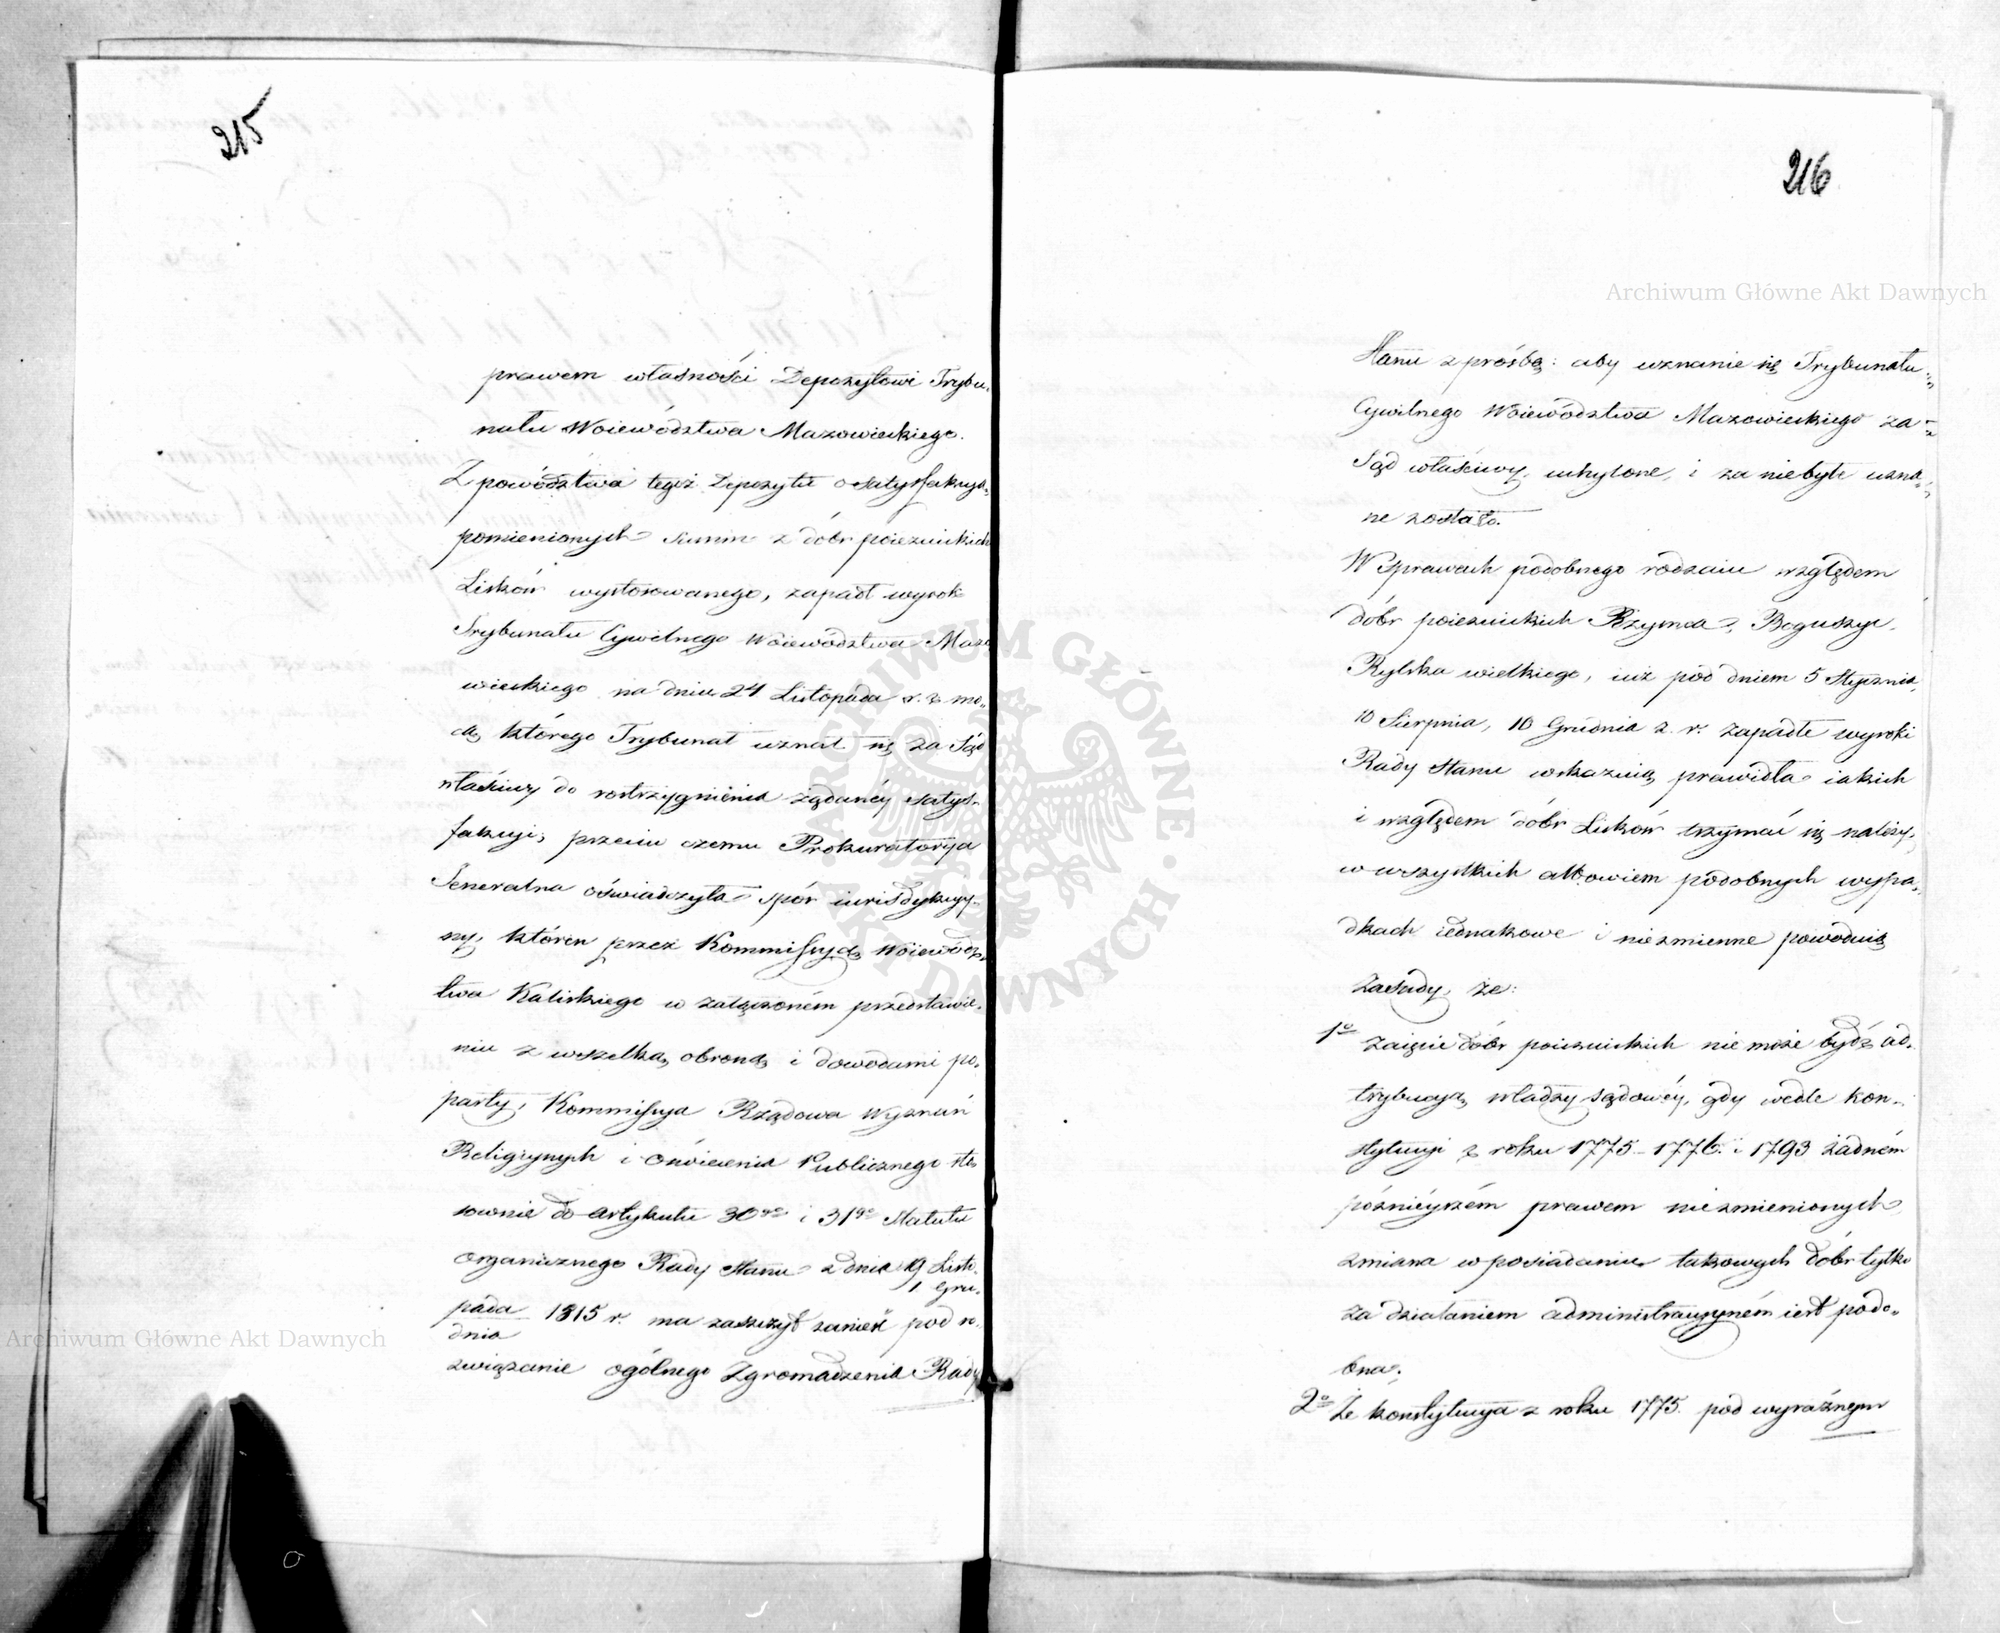 215
prawem własności Depozytowi Trybu-
nału Woiewództwa Mazowieckiego.
Z powództwa tegoż Depozytu o satysfakcyą
pomienionych summ z dóbr poiezuickich
Lisków wystosowanego, zapadł wyrok
Trybunału Cywilnego Woiewództwa Mazo
wieckiego na dniu 24 Listopada r. z. mo-
cą którego Trybunał uznał się za Sąd
właściwy do rostrzygnienia żądanéy satys-
fakcyi, przeciw czemu Prokuratorya
Generalna oświadczyła spór iurisdykcyy-
ny, któren przez Kommissyą Woiewódz-
twa Kaliskiego w załączoném przedstawie-
niu z wszelką obroną i dowodami po-
party, Kommissya Rządowa Wyznań
Religiynych i Oświecenia Publicznego sto
sownie do artykułu 30go i 31go Statutu
organicznego Rady Stanu z dnia 19 Listo-
pada 1 Gru-
dnia 1815 r. ma zaszczyt zanieść pod ro-
związanie ogólnego Zgromadzenia Rady
216
Stanu z prośbą: aby uznanie się Trybunału
Cywilnego Woiewództwa Mazowieckiego za
Sąd właściwy, uchylone, i za niebyłe uzna-
ne zostało.
W sprawach podobnego rodzaiu względem
dóbr poiezuickich Rzymca, Boguszyc,
Rylska wielkiego, iuż pod dniem 5 Stycznia,
10 Sierpnia, 10 Grudnia z. r. zapadłe wyroki
Rady Stanu wskazuią prawidła iakich
i względem dóbr Lisków trzymać się należy,
w wszystkich albowiem podobnych wypa-
dkach iednakowe i niezmienne powoduią
zasady, że:
1o zaięcie dóbr poiezuickich nie może bydź at-
trybucyą władzy sądowéy, gdy wedle kon-
stytucyi z roku 1775 1776. i 1793 żadném
późnieyszém prawem niezmienionych
zmiana w posiadaniu takowych dóbr tylko
za działaniem administracyyném iest podo-
bna.
2o Że konstytucya z roku 1775. pod wyraźnym
Archiwum Główne Akt Dawnych
Archiwum Główne Akt Dawnych
ARCHIWUM GŁÓWNE AKT DAWNYCH